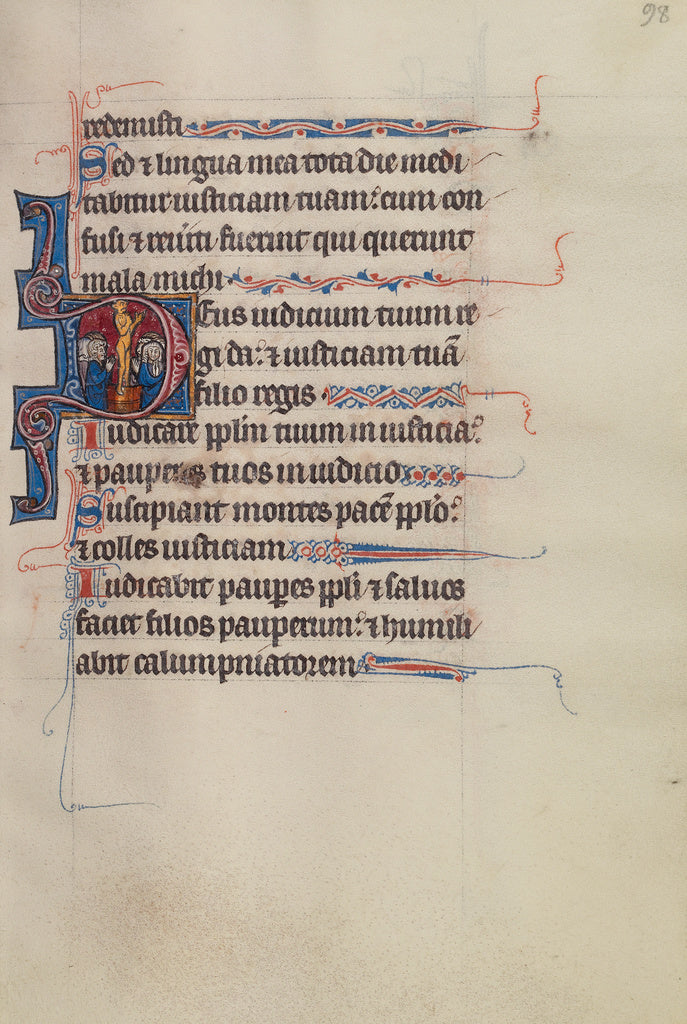 98
redemisti
Sed ⁊ lingua mea tota die medi
tabitur iusticiam tuam: cum con
fusi ⁊ reũiti fuerint qui querunt
mala michi.
Deus iudicium tuum re
gi da: ⁊ iusticiam tuã
filio regis.
Iudicare pplm tuum in iusticia:
⁊ pauperes tuos in iudicio
Suscipiant montes pacẽ pplo:
⁊ colles iusticiam
Iudicabit pauꝑes ppli ⁊ saluos
faciet filios pauperum: ⁊ humili
abit calumpniatorem